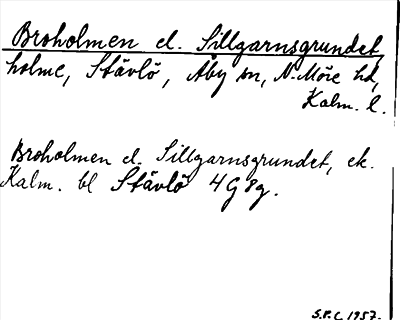 Broholmen el. Sillgarnsgrundet,
holme, Stävlö, Åby sn, N. Möre hd,
Kalm. l.
Broholmen el. Sillgarnsgrundet, ek.
Kalm. bl Stävlö 4G8g.
S.F.C. 1957.